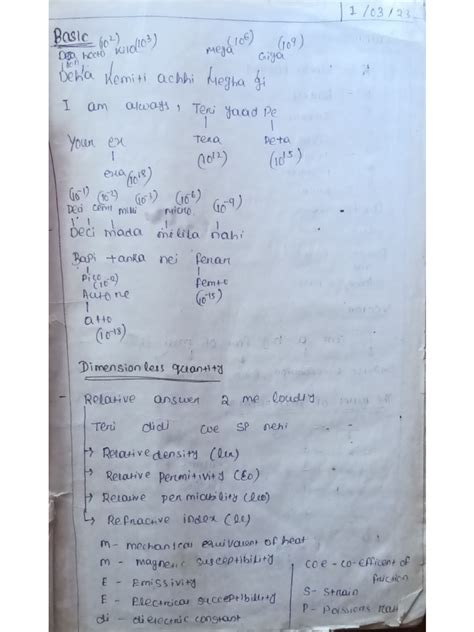 1/03/23
Basic
Deca hecto (10²) Kilo(10³) mega (10⁶) Giga (10⁹)
(10¹)
Deka Kemiti achhi Megha gi
I am always, Teri yaad Pe
Your ex Tera Peta
(10¹²) (10¹⁵)
exa(10¹⁸)
(10⁻¹) (10⁻²) (10⁻³) (10⁻⁶) (10⁻⁹)
Deci centi milli micro
Deci mada mikila nahi
Bapi tanka nei
Pico femto
(10⁻¹⁵)
atto
(10⁻¹⁸)
Dimensionless quantity
Relative answer 2 me loudly
Teri didi coe SP nehi
→ Relative density
→ Relative Permitivity
→ Relative permiability
→ Refractive index
m - mechanical equivalent of heat
m - magnetic susceptibility
E - Emissivity
E - Electrical succeptibility
di - dielectric constant
COE - co-efficent of
friction
S - Strain
P - Poissions